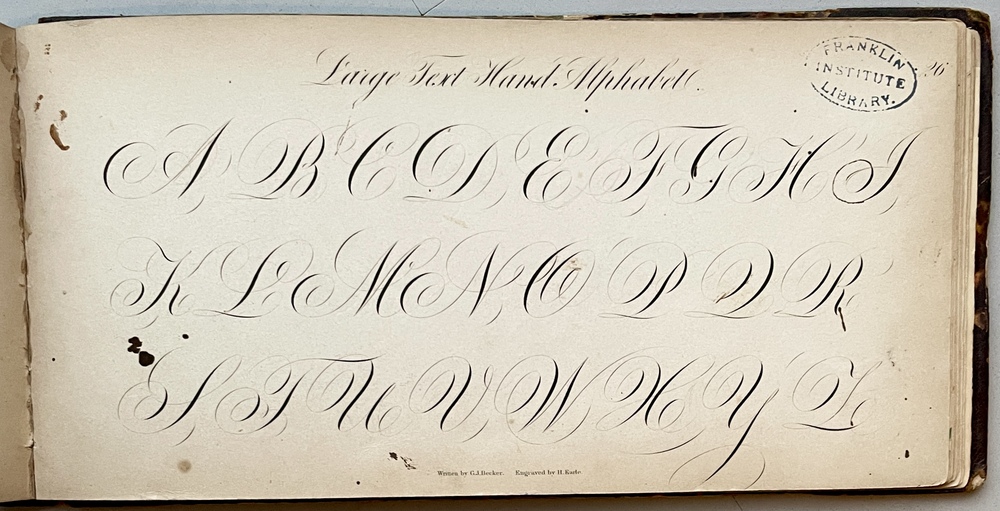 Large Text Hand Alphabet.
FRANKLIN
INSTITUTE
LIBRARY.
26
A B C D E F G H I
K L M N O P Q R
S T U V W X Y Z
Written by G.J.Becker. Engraved by H. Earle.